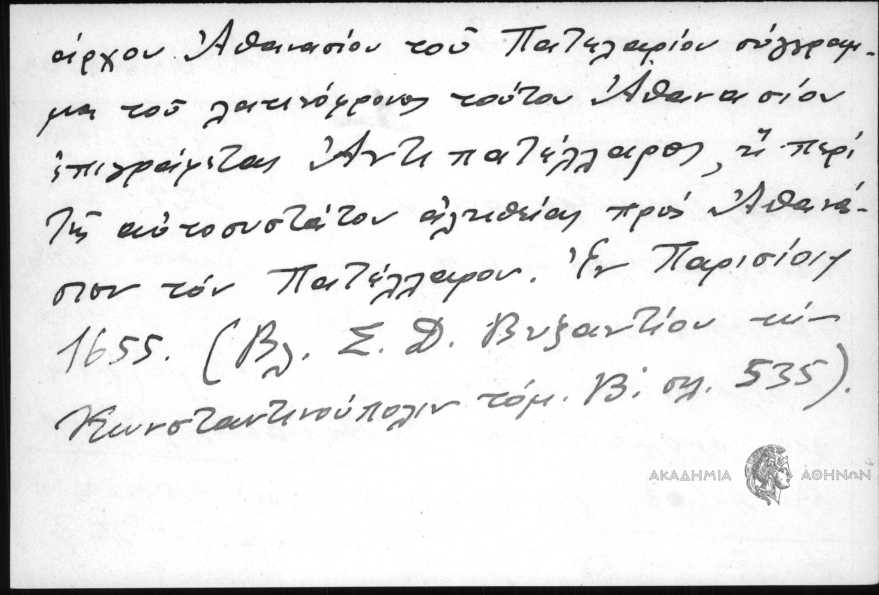 άρχου Ἀθανασίου τοῦ Πατελαρίου σύγγραμ-
μα τοῦ λατινόφρονος τούτου Ἀθανασίου
ἐπιγράφεται Ἀντιπατέλλαρος, ἤ περί
τῆς αὐτοσυστάτου ἀληθείας πρός Ἀθανά-
σιον τόν Πατέλλαρον. Ἐν Παρισίοις
1655. (Βλ. Σ. Δ. Βυζαντίου
Κωνσταντινούπολιν τόμ. Β΄. σλ. 535).
ΑΚΑΔΗΜΙΑ ΑΘΗΝΩΝ